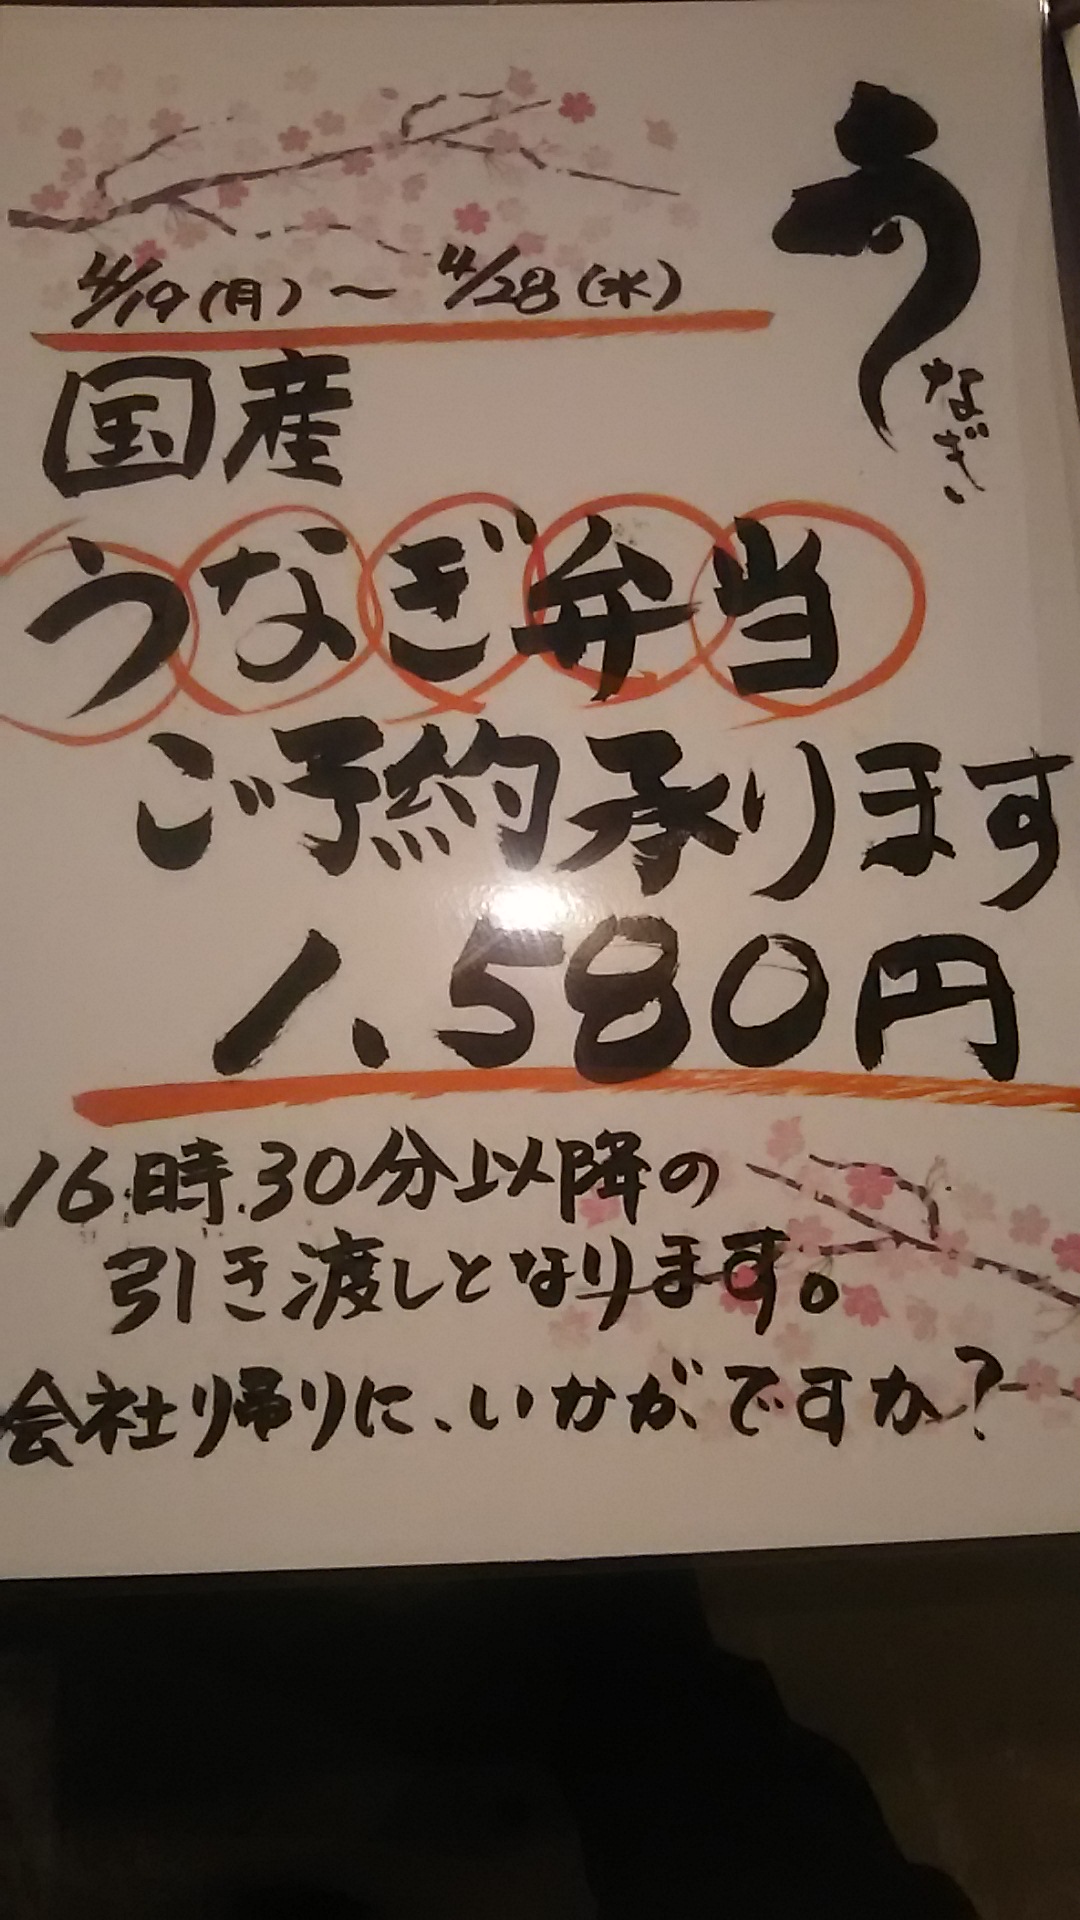 うなぎ
4/19(月)〜4/28(水)
国産
うなぎ弁当
ご予約承ります
1,580円
16時30分以降の
引き渡しとなります。
会社り帰りに、いかがですか?